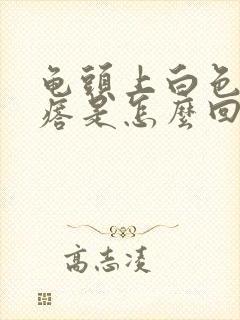 龟頭上白色
痞是怎麼回
高志凌